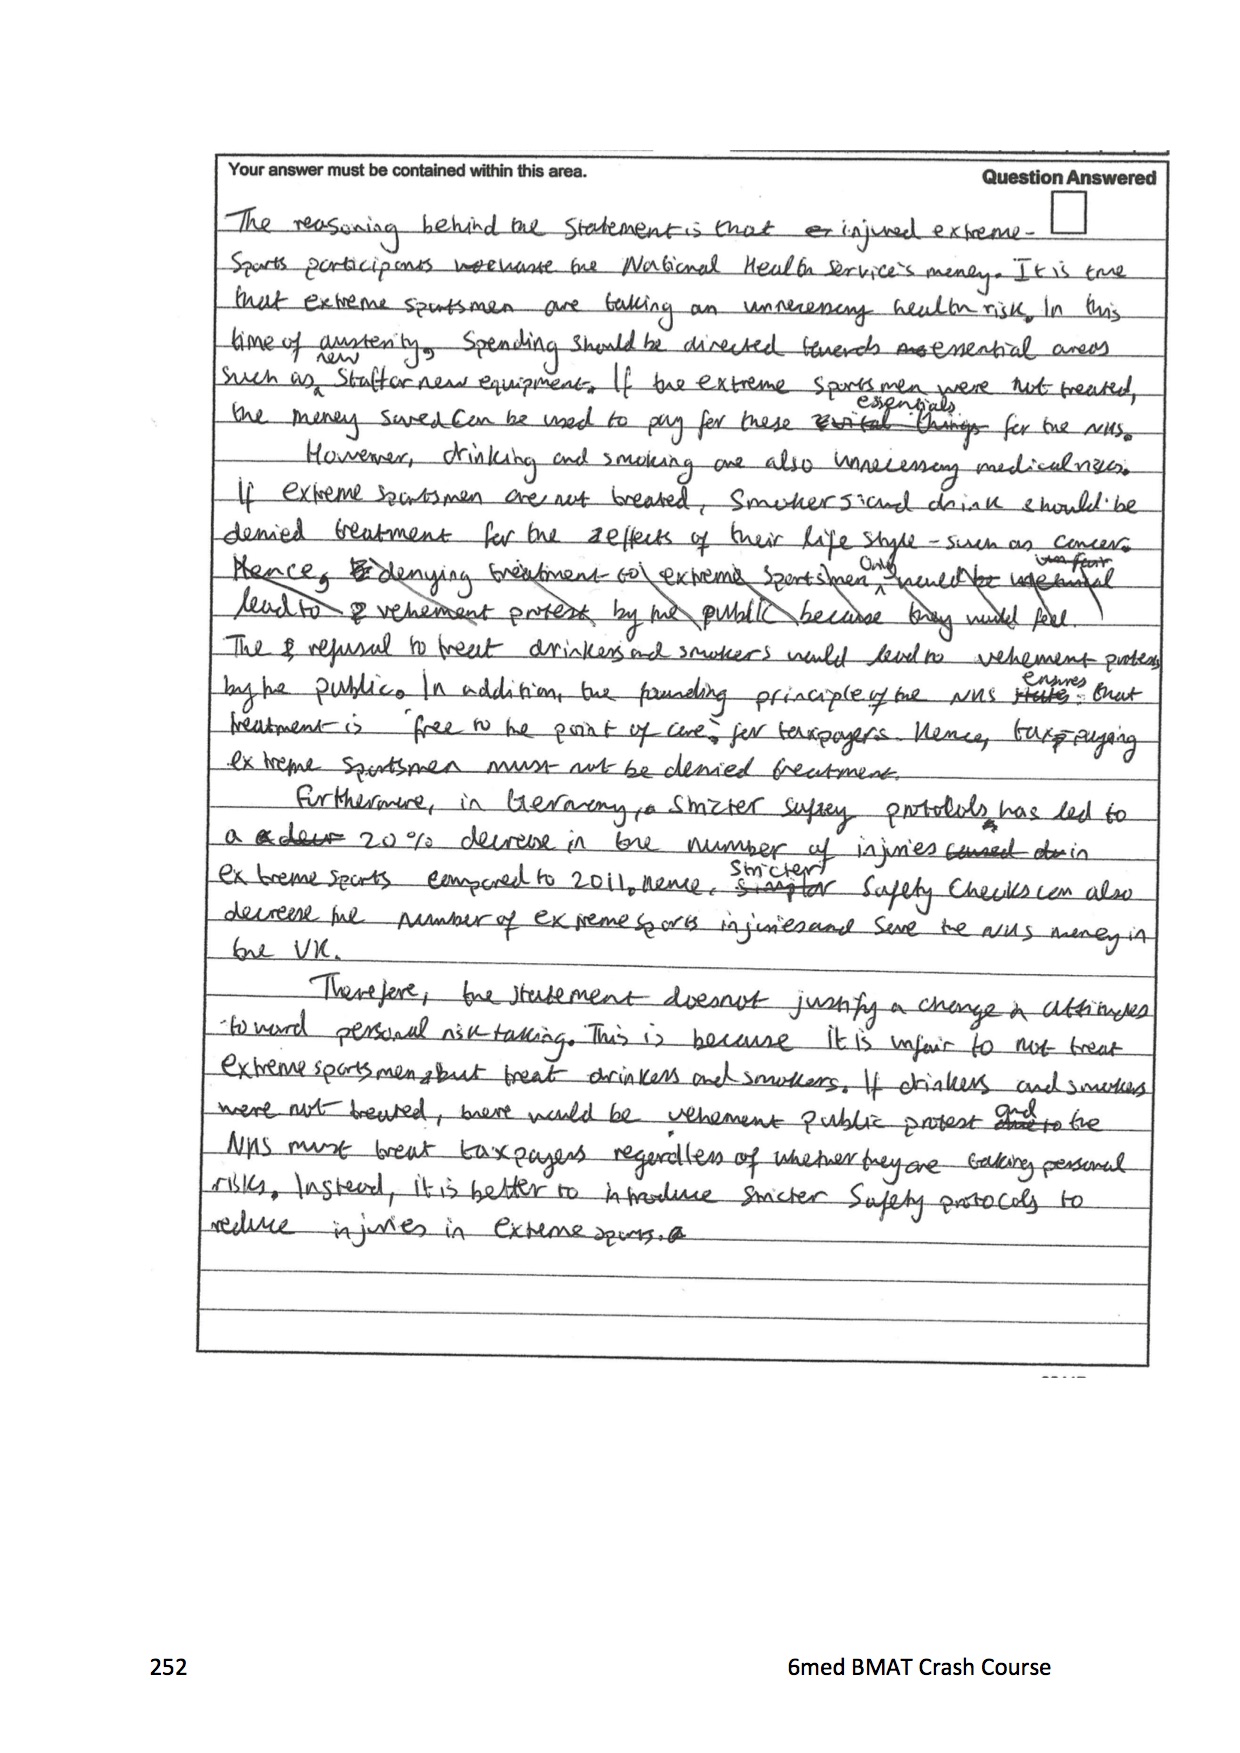 Your answer must be contained within this area.
Question Answered
The reasoning behind the statement is that injured extreme-
sports participants waste the National Health Service's money. It is true
that extreme sportsmen are taking an unnecessary health risk. In this
time of austerity, spending should be directed towards essential areas
such as new staff or new equipment. If the extreme sportsmen were not treated,
the money saved can be used to pay for these essentials for the NHS.
However, drinking and smoking are also unnecessary medical risks.
If extreme sportsmen are not treated, smokers and drink should be
denied treatment for the effects of their life style - such as cancer.
Hence, denying treatment to extreme sportsmen only would be unfair
lead to vehement protest by the public because they would feel.
The refusal to treat drinkers and smokers would lead to vehement protests
by he public. In addition, the founding principle of the NHS ensures that
treatment is "free to the point of care" for taxpayers. Hence, tax-paying
extreme sportsmen must not be denied treatment.
Furthermore, in Germany, stricter saftey protocols has led to
a 20% decrease in the number of injuries in
extreme sports compared to 2011. Hence, stricter safety checks can also
decrease the number of extreme sports injuries and save the NHS money in
the UK.
Therefore, the statement does not justify a change in attitudes
toward personal risk-taking. This is because it is unfair to not treat
extreme sportsmen but treat drinkers and smokers. If drinkers and smokers
were not treated, there would be vehement public protest and the
NHS must treat taxpayers regardless of whether they are taking personal
risks. Instead, it is better to introduce stricter safety protocols to
reduce injuries in extreme sports.
252
6med BMAT Crash Course